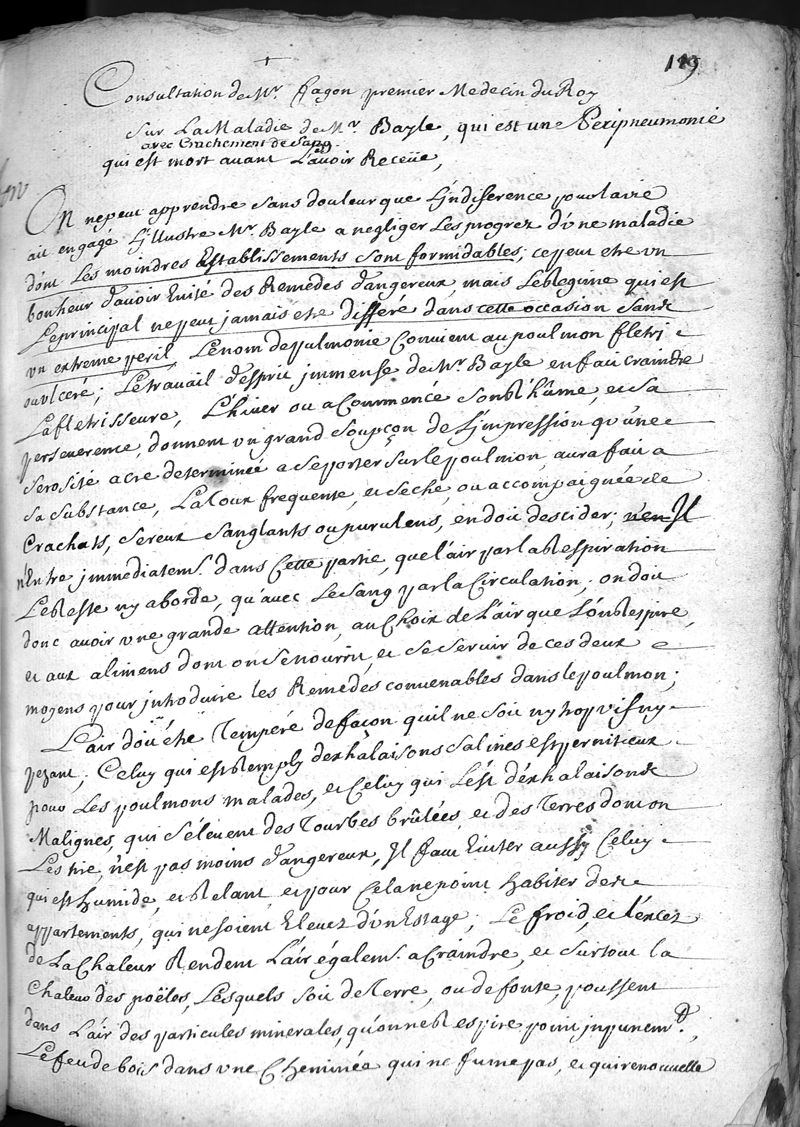 119
Consultation de Mr. fagon premier Medecin du Roy
Sur La Maladie de Mr Bayle, qui est une Peripneumonie
avec Crachement de Sang
qui est mort avant L'avoir Receüe,
On ne peut apprendre sans douleur que L'jndiference pour la vie
ait engagé L'jllustre Mr. Bayle a negliger Les progrez d'vne maladie
dont Les moindres Establissements sont formidables; ce peut etre vn
bonheur d'avoir Euité des Remedes d'angereux, mais Le Regime qui est
Le principal ne peut jamais etre differé dans cette occasion sans
vn extreme peril, Le nom de pulmonie Convient au poulmon fletri
ou vlceré; Le travail d'esprit jmmense de Mr. Bayle en fait craindre
La fletrisseure, L'hiuer ou a Commencé son Rhûme, et sa
perseuerence, donnent vn grand soupçon de L'jmpression qu'vne
serosité acre determinée a se porter sur le poulmon, aura fait a
sa substance, La toux frequente, et seche ou accompaignée de
Crachats, sereux sanglants ou purulens, en doit descider; Jl
n'Entre jmmediatemt. dans Cette partie, que l'air par la Respiration
Le Reste ny aborde, qu'avec Le sang par la Circulation; on doit
donc avoir vne grande attention, au Choix de L'air que L'on Respire,
et aux alimens dont on se nourrit, et se seruir de ces deux
moyens pour jntroduire les Remedes convenables dans le poulmon;
L'air doit être Temperé de façon qu'il ne soit ny trop vif ny
pezant; Celuy qui est Remply d'exhalaisons salines est pernitieux
pour Les poulmons malades, et Celuy qui L'est d'exhalaisons
Malignes, qui s'éleuent des Tourbes brûlées et des Terres dont on
Les tire, n'est pas moins d'angereux, Jl faut Euiter aussy Celuy
qui est humide, et Relant, et pour Cela ne point habiter des
appartements, qui ne soient Eleuez d'vn Estage; Le froid, et l'excez
de La Chaleur Rendent L'air égalemt. a Craindre, et surtout la
Chaleur des poëles, Lesquels soit de Terre, ou de fonte, poussent
dans L'air des particules minerales, qu'on ne Respire point jnpunemt.,
Le feu de bois dans vne Cheminée qui ne fume pas, et qui renouuelle